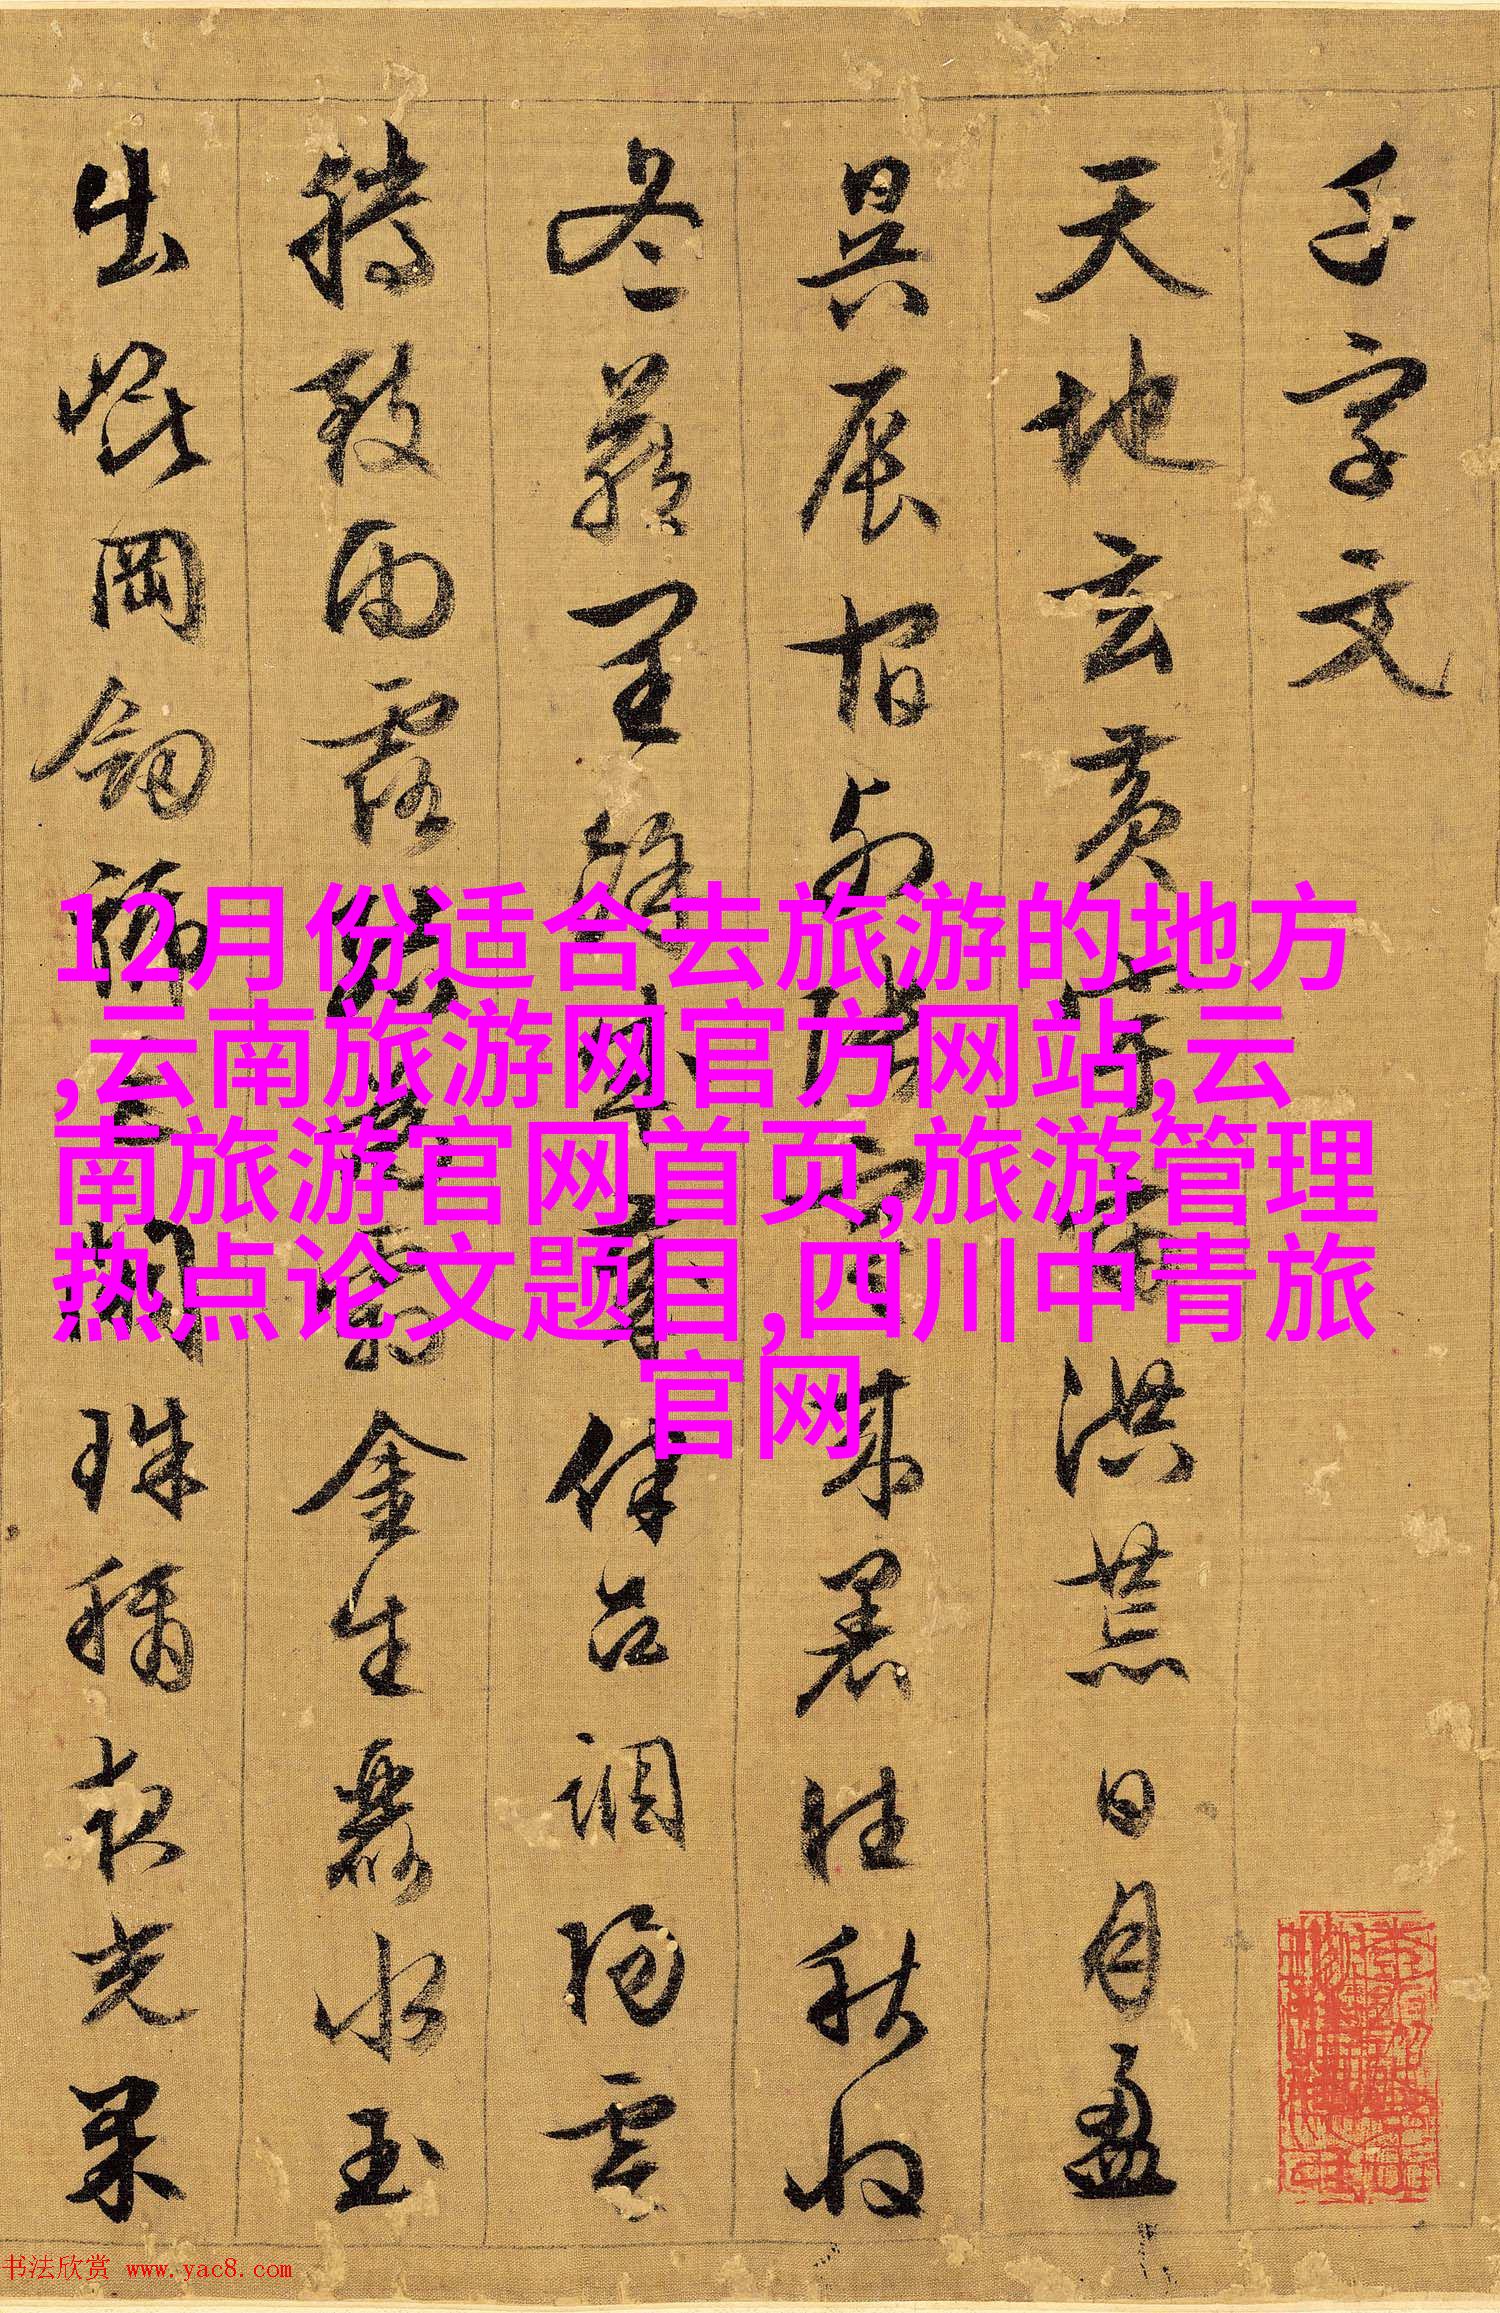 千字文
天地玄黃宇宙洪荒日月盈
昃辰宿列張寒来暑往秋收
冬藏閏餘成歲律呂調陽雲
騰致雨露結為霜金生麗水玉
出崑岡劍號巨闕珠稱夜光果
12月份适合去旅游的地方
,云南旅游网官方网站,云
南旅游官网首页,旅游管理
热点论文题目,四川中青旅
官网
书法欣赏 www.yac8.com